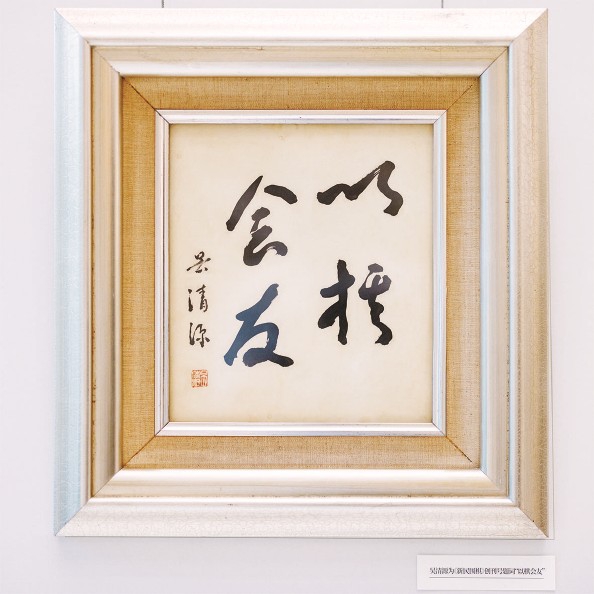 以棋
会友
吴清源
吴清源为《新民围棋》创刊号题词“以棋会友”